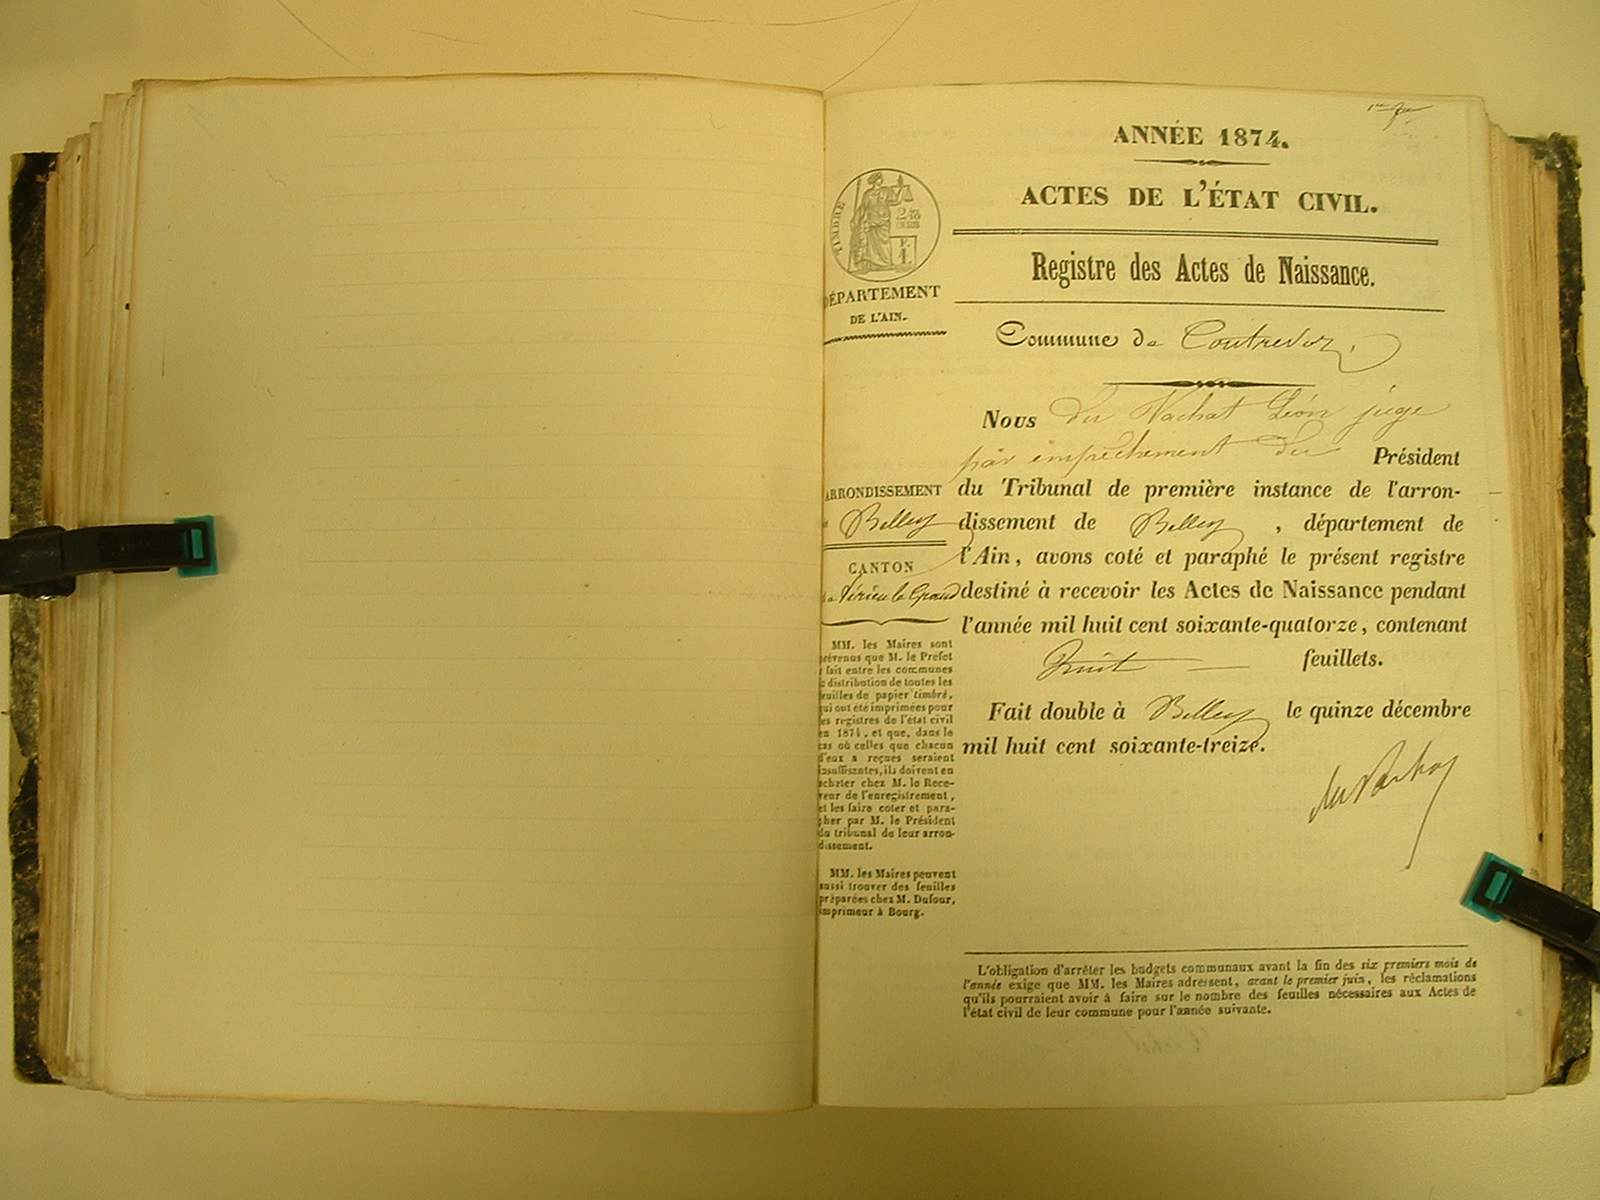 ANNÉE 1874.
ACTES DE L'ÉTAT CIVIL.
TIMBRE
Registre des Actes de Naissance.
DÉPARTEMENT
DE L'AIN.
Commune de Contrevoz,
Nous du Vachat Léon juge
par empêchement du Président
du Tribunal de première instance de l'arron-
dissement de Belley, département de
l'Ain, avons coté et paraphé le présent registre
destiné à recevoir les Actes de Naissance pendant
l'année mil huit cent soixante-quatorze, contenant
huit feuillets.
Fait double à Belley le quinze décembre
mil huit cent soixante-treize.
du Vachat
ARRONDISSEMENT
de Belley
CANTON
de Virieu le Grand
MM. les Maires sont
prévenus que M. le Préfet
a fait entre les communes
la distribution de toutes les
feuilles de papier timbré,
qui ont été imprimées pour
les registres de l'état civil
en 1874, et que, dans le
cas où celles que chacun
d'eux a reçues seraient
insuffisantes, ils doivent en
acheter chez M. le Rece-
veur de l'enregistrement,
et les faire coter et para-
pher par M. le Président
du tribunal de leur arron-
dissement.
MM. les Maires peuvent
aussi trouver des feuilles
préparées chez M. Dufour,
imprimeur à Bourg.
L'obligation d'arrêter les budgets communaux avant la fin des six premiers mois de
l'année exige que MM. les Maires adressent, avant le premier juin, les réclamations
qu'ils pourraient avoir à faire sur le nombre des feuilles nécessaires aux Actes de
l'état civil de leur commune pour l'année suivante.